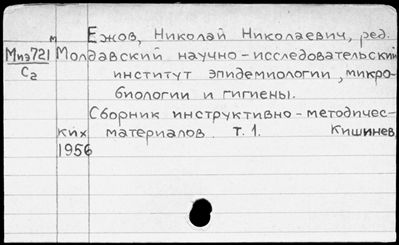 м Ежов, Николай Николаевич, ред.
Миз721 Молдавский научно-исследовательский
С2 институт эпидемиологии, микро-
биологии и гигиены.
Сборник инструктивно-методичес-
ких материалов. т. 1. Кишинев,
1956